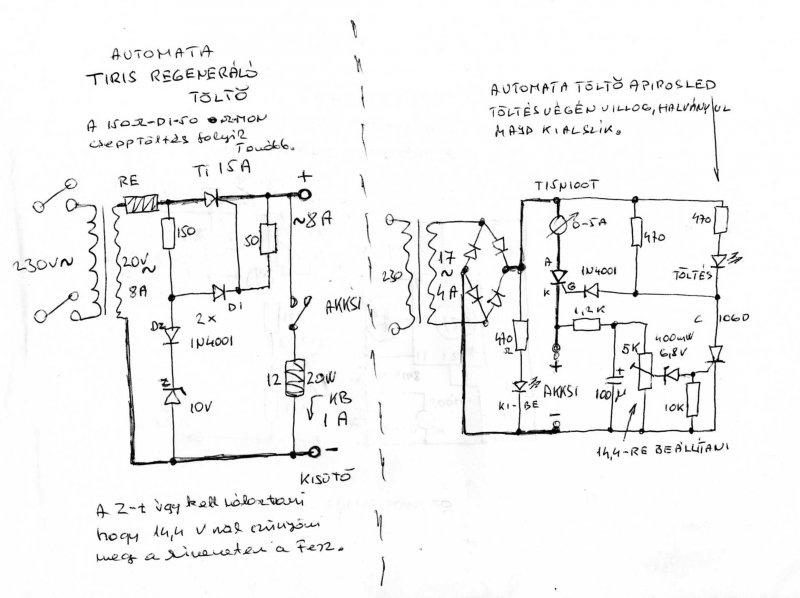 AUTOMATA
TIRIS REGENERÁLÓ
TÖLTŐ
A 150Ω-DI-50 OHMON
csepptöltés folyik
Tovább.
RE
Ti 15A
+
~8A
150
50
230V~
20V
~
8A
Di
2x
DZ
1N4001
AKKSI
Z
10V
12
20W
KB
1A
-
KISÜTŐ
A Z-t úgy kell
hogy 14,4 V nál
meg a a Fesz.
AUTOMATA TÖLTŐ A PIROS LED
TÖLTÉS VÉGÉN VILLOG, HALVÁNYUL
MAJD KIALSZIK.
T15N100T
0-5A
470
470
TÖLTÉS
230
17
~
4A
A
K
G
1N4001
C
106D
1,2K
470
Ω
KI-BE
+
AKKSI
-
+
100µ
5K
400mW
6,8V
10K
14,4-RE BEÁLLÍTANI